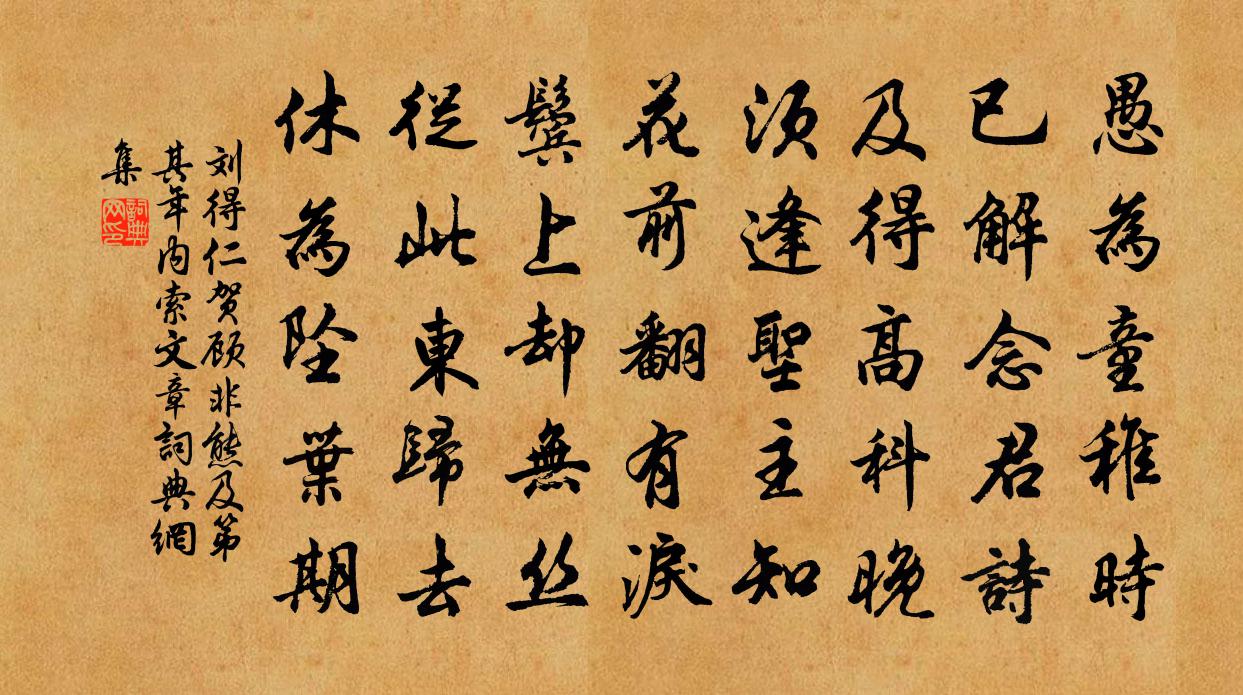 愚為童稚時
已解念君詩
及得高科晚
須逢聖主知
花前翻有淚
鬢上却無丝
從此東歸去
休為坠葉期
刘得仁贺顾非熊及第
其年内索文章詞典網
集
詞典网印